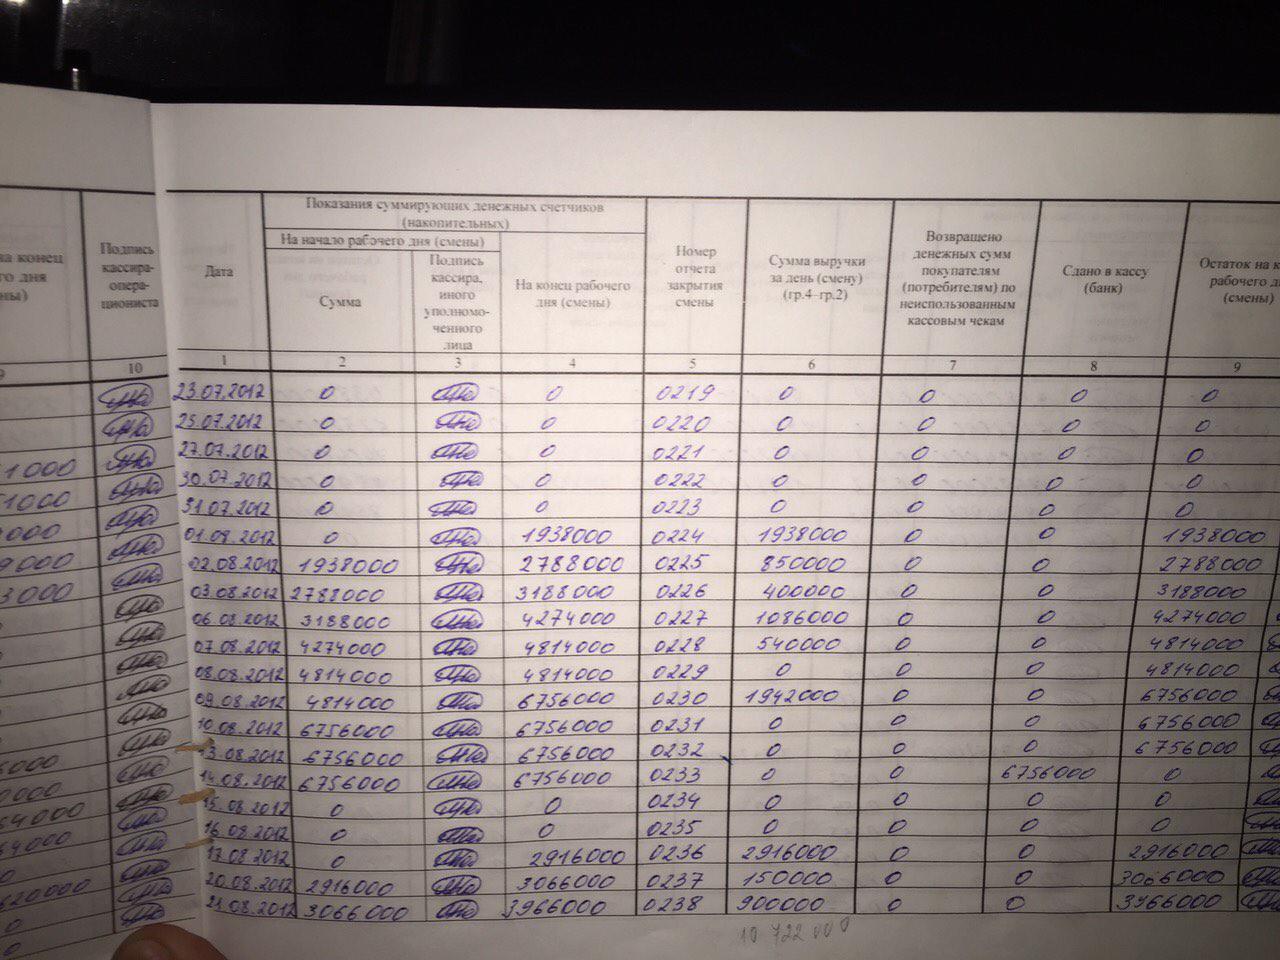 Показания суммирующих денежных счетчиков
(накопительных)
На начало рабочего дня (смены)
на конец
дня
Подпись
кассира-
опера-
циониста
Дата
Сумма
Подпись
кассира,
иного
уполномо-
ченного
лица
На конец рабочего
дня (смены)
Номер
отчета
закрытия
смены
Сумма выручки
за день (смену)
(гр.4–гр.2)
Возвращено
денежных сумм
покупателям
(потребителям) по
неиспользованным
кассовым чекам
Сдано в кассу
(банк)
Остаток на
рабочего
(смены)
10 1 2 3 4 5 6 7 8 9
23.07.2012 0 0 0219 0 0 0 0
25.07.2012 0 0 0220 0 0 0 0
27.07.2012 0 0 0221 0 0 0 0
30.07.2012 0 0 0222 0 0 0 0
31.07.2012 0 0 0223 0 0 0 0
01.08.2012 0 1938000 0224 1938000 0 0 1938000
02.08.2012 1938000 2788000 0225 850000 0 0 2788000
03.08.2012 2788000 3188000 0226 400000 0 0 3188000
06.08.2012 3188000 4274000 0227 1086000 0 0 4274000
07.08.2012 4274000 4814000 0228 540000 0 0 4814000
08.08.2012 4814000 4814000 0229 0 0 0 4814000
09.08.2012 4814000 6756000 0230 1942000 0 0 6756000
10.08.2012 6756000 6756000 0231 0 0 0 6756000
13.08.2012 6756000 6756000 0232 0 0 0 6756000
14.08.2012 6756000 6756000 0233 0 0 6756000 0
15.08.2012 0 0 0234 0 0 0 0
16.08.2012 0 0 0235 0 0 0 0
17.08.2012 0 2916000 0236 2916000 0 0 2916000
20.08.2012 2916000 3066000 0237 150000 0 0 3066000
21.08.2012 3066000 3966000 0238 900000 0 0 3966000
10 722 000